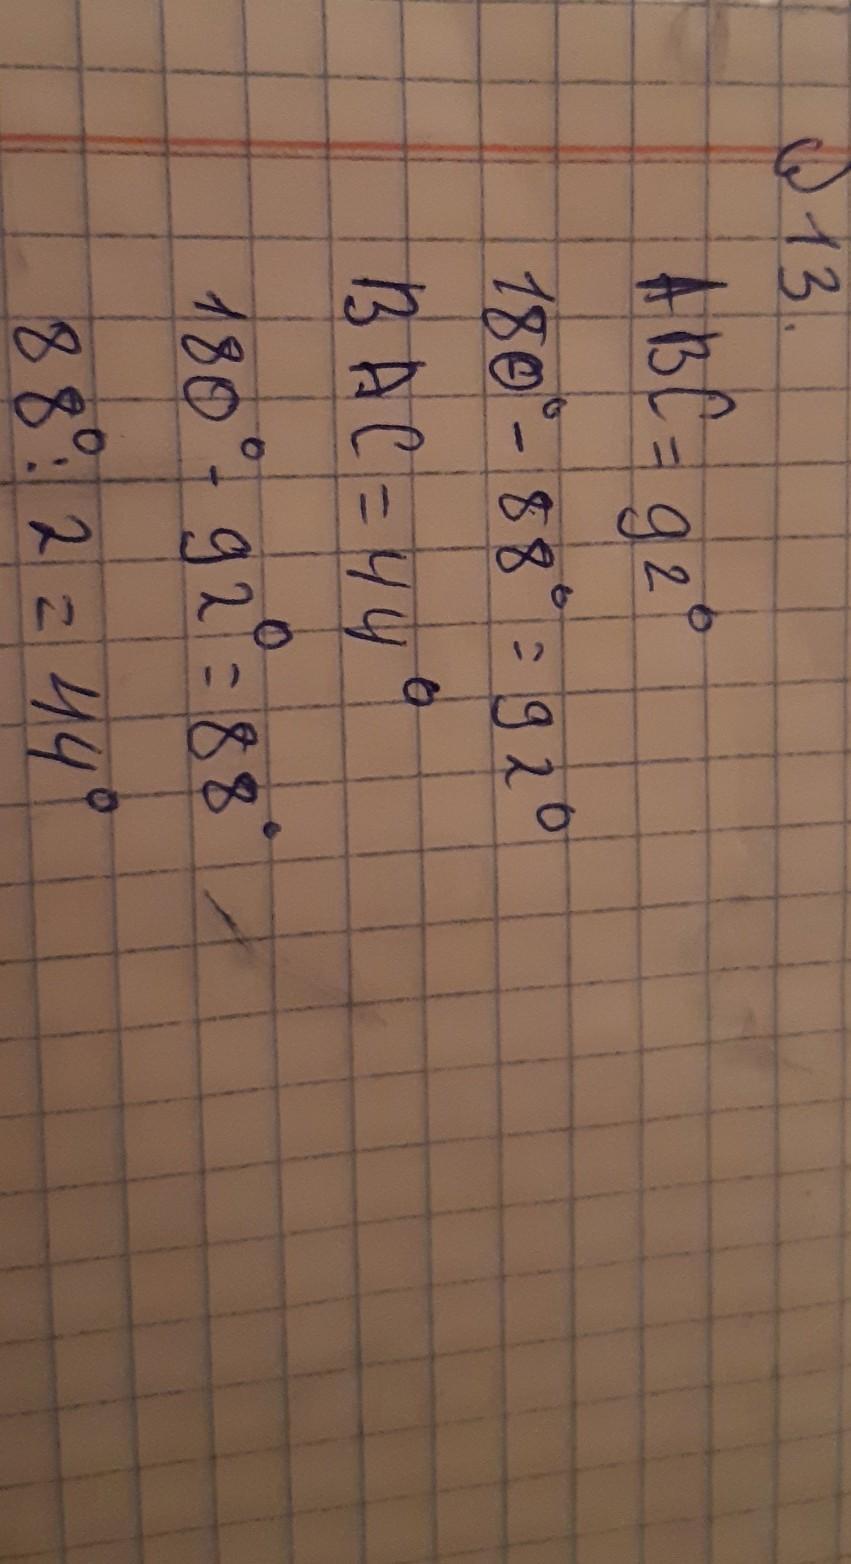 13.
ABC = 92°
180° - 88° = 92°
BAC = 44°
180° - 92° = 88°
88° : 2 = 44°